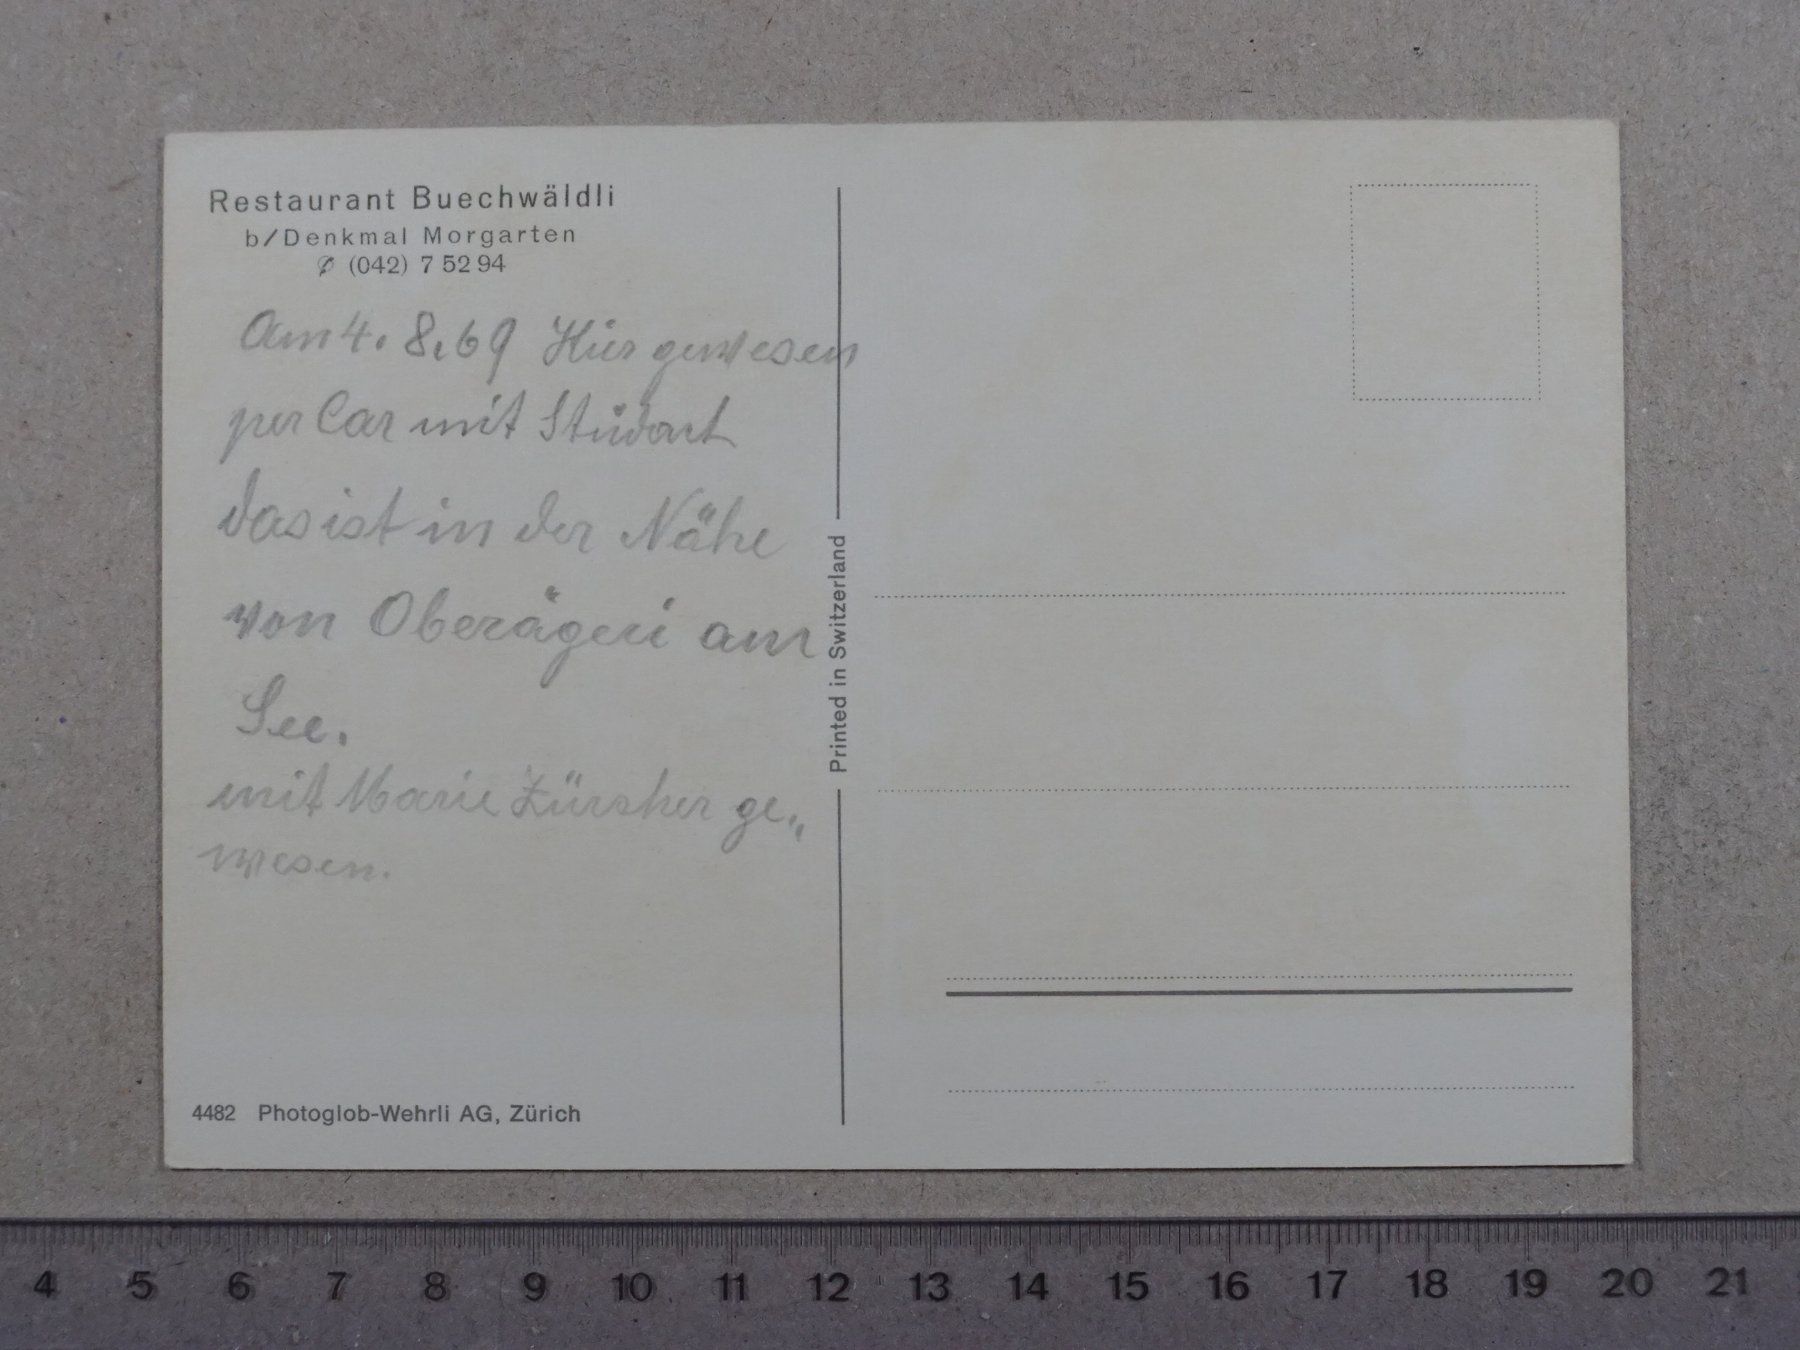 Restaurant Buechwäldli
b/Denkmal Morgarten
(042) 7 52 94
Am 4. 8. 69 Hier gewesen
per Car mit
das ist in der Nähe
von Oberägeri am
See.
mit Marie Zürcher ge„
wesen.
4482 Photoglob-Wehrli AG, Zürich
Printed in Switzerland
4 5 6 7 8 9 10 11 12 13 14 15 16 17 18 19 20 21